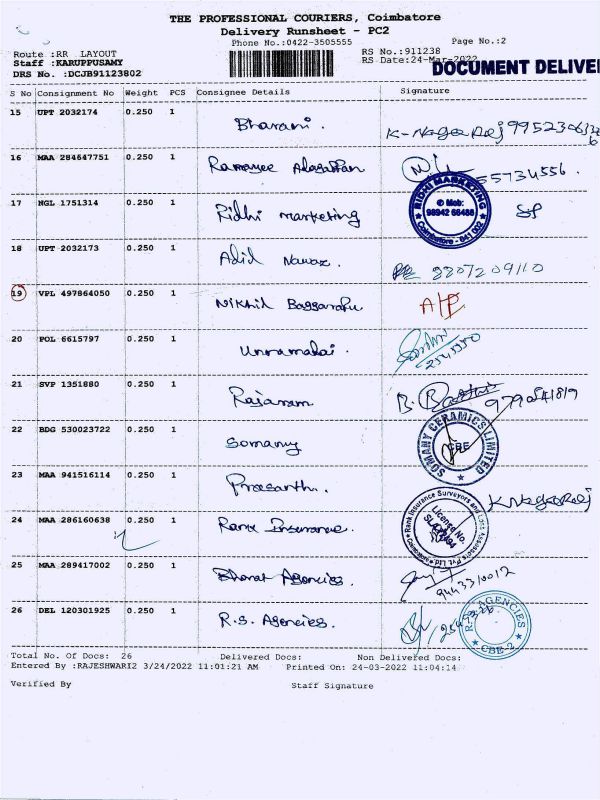 THE PROFESSIONAL COURIERS, Coimbatore
Delivery Runsheet - PC2
Phone No.:0422-3505555 Page No.:2
Route :RR LAYOUT RS No.:911238
Staff :KARUPPUSAMY RS Date:24-Mar-2022
DRS No. :DCJB91123802 DOCUMENT DELIVE
S No Consignment No Weight PCS Consignee Details Signature
15 UPT 2032174 0.250 1 Bharani. K-Nagaraj
16 MAA 284647751 0.250 1
17 NGL 1751314 0.250 1 Ridhi marketing RIDHI MARKETING Mob: 98942 66488 Coimbatore - 641 002
18 UPT 2032173 0.250 1 Adil Nawaz. 2207209110
19 VPL 497864050 0.250 1 Nikhil A/P
20 POL 6615797 0.250 1 Unnamalai. 2545350
21 SVP 1351880 0.250 1 Rajaram B. 9790541819
22 BDG 530023722 0.250 1 Somany SOMANY CERAMICS LIMITED CBE
23 MAA 941516114 0.250 1 Prasanth. K Nagaraj
24 MAA 286160638 0.250 1 Rank Insurance. Rank Insurance Surveyors and Loss Assessors Pvt. Ltd. License No. Coimbatore
25 MAA 289417002 0.250 1 Bharat Agencies. 9443310012
26 DEL 120301925 0.250 1 R.S. Agencies. R.S. AGENCIES CBE-2
Total No. Of Docs: 26 Delivered Docs: Non Delivered Docs:
Entered By :RAJESHWARI2 3/24/2022 11:01:21 AM Printed On: 24-03-2022 11:04:14
Verified By Staff Signature